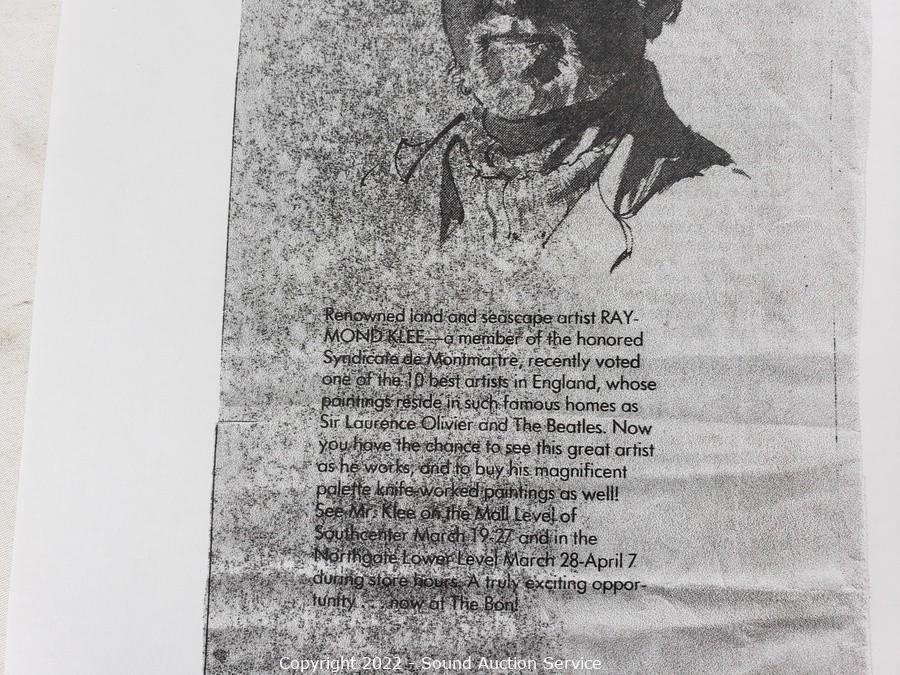 Renowned land and seascape artist RAY-
MOND KLEE—a member of the honored
Syndicate de Montmartre, recently voted
one of the 10 best artists in England, whose
paintings reside in such famous homes as
Sir Laurence Olivier and The Beatles. Now
you have the chance to see this great artist
as he works, and to buy his magnificent
palette knife-worked paintings as well!
See Mr. Klee on the Mall Level of
Southcenter March 19-27 and in the
Northgate Lower Level March 28-April 7
during store hours. A truly exciting oppor-
tunity . . . now at The Bon!
Copyright 2022 - Sound Auction Service